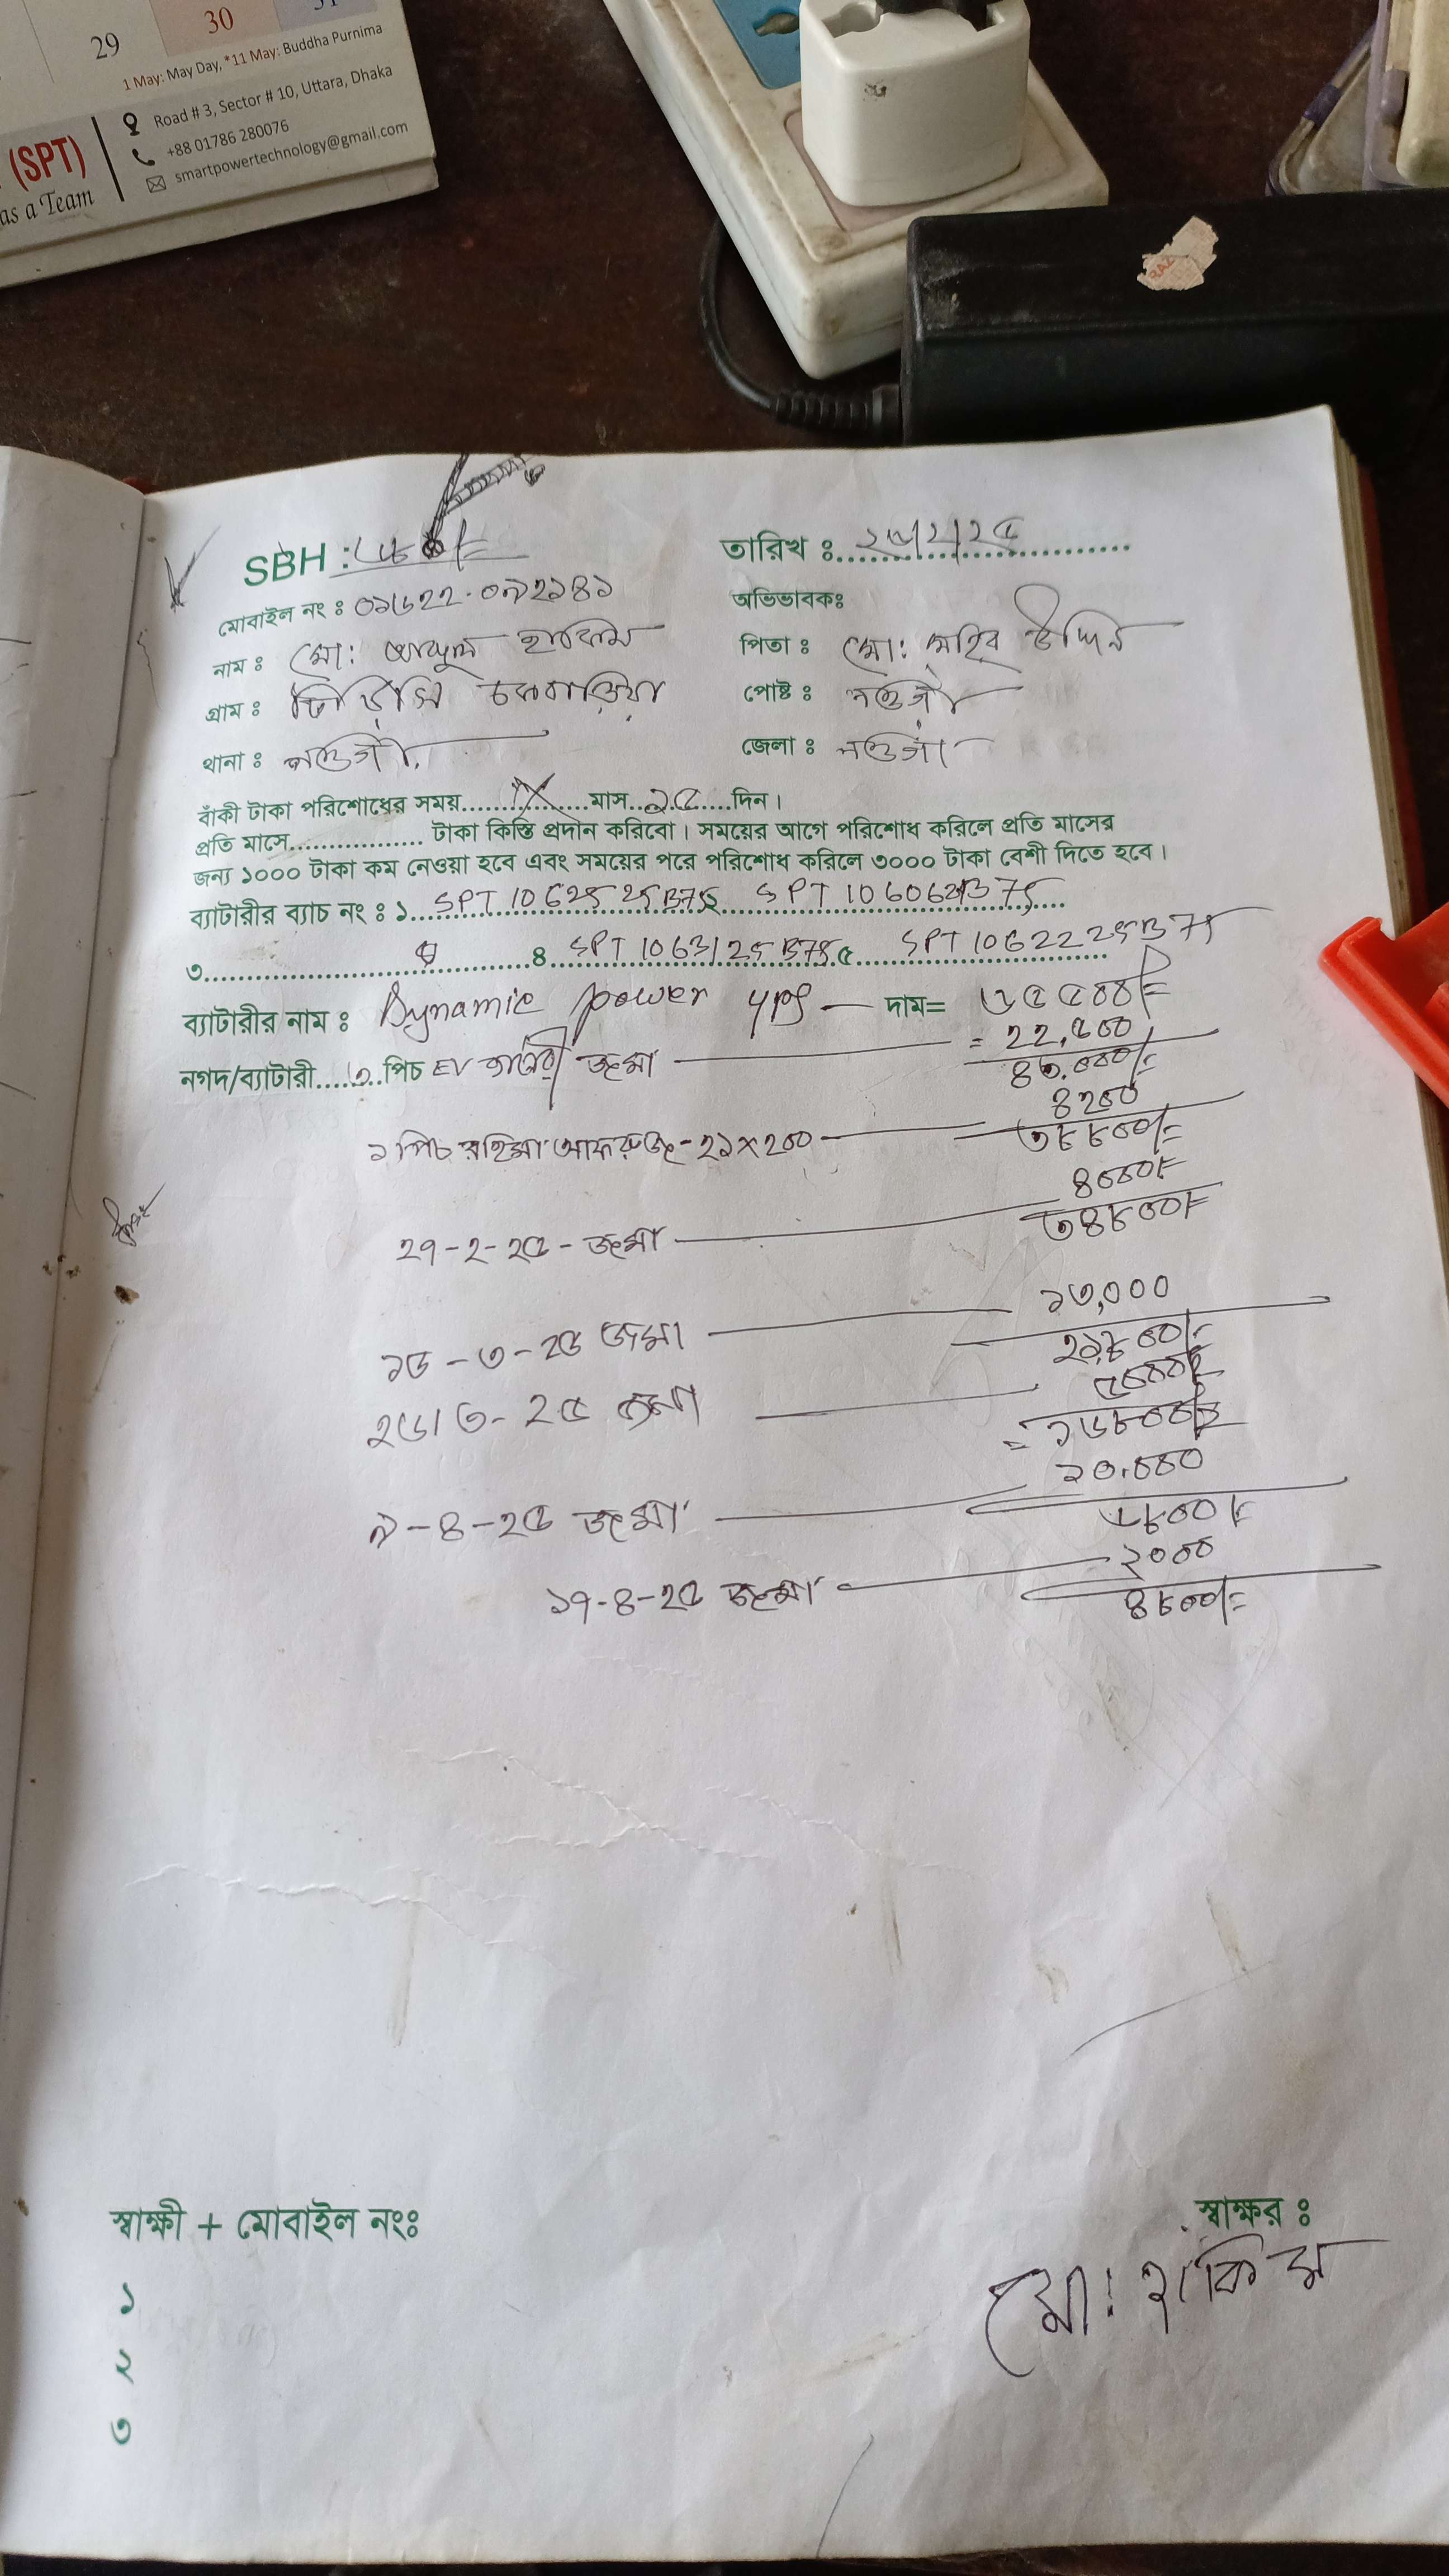 29 30 31
1 May: May Day, *11 May: Buddha Purnima
(SPT)
as a Team
Road # 3, Sector # 10, Uttara, Dhaka
+88 01786 280076
smartpowertechnology@gmail.com
SBH :
তারিখ ঃ ২৬/২/২৫
মোবাইল নং ঃ ০১৬২২-০৯২১৪১
অভিভাবকঃ
নাম ঃ মো: আব্দুল হাকিম
পিতা ঃ মো: উদ্দিন
গ্রাম ঃ
পোষ্ট ঃ নওগাঁ
থানা ঃ নওগাঁ
জেলা ঃ নওগাঁ
বাঁকী টাকা পরিশোধের সময়.......মাস..১৫....দিন।
প্রতি মাসে.................. টাকা কিস্তি প্রদান করিবো। সময়ের আগে পরিশোধ করিলে প্রতি মাসের
জন্য ১০০০ টাকা কম নেওয়া হবে এবং সময়ের পরে পরিশোধ করিলে ৩০০০ টাকা বেশী দিতে হবে।
ব্যাটারীর ব্যাচ নং ঃ ১...SPT 1062525B75 ২ SPT 10606
৩..............৪ SPT 1063125B75 ৫ SPT 1062225B75
ব্যাটারীর নাম ঃ Dynamic power 4ps — দাম= ৬৫৫০০/=
= ২২,৫০০
নগদ/ব্যাটারী....৩..পিচ EV ব্যাটারী জমা ৪৩,০০০/=
৪২০০
১ পিচ রহিমা আফরুজ - ২১×২০০ ৩৮৮০০/=
৪০০০/=
২৭-২-২৫ - জমা ৩৪৮০০/=
১৩,০০০
১৬-৩-২৫ জমা ২১,৮০০/=
৫০০০/=
২৬/৩-২৫ জমা = ১৬৮০০/=
১০,০০০
৯-৪-২৫ জমা ৬৮০০/=
২০০০
১৭-৪-২৫ জমা ৪৮০০/=
স্বাক্ষী + মোবাইল নংঃ
স্বাক্ষর ঃ
মো: হাকিম
১
২
৩